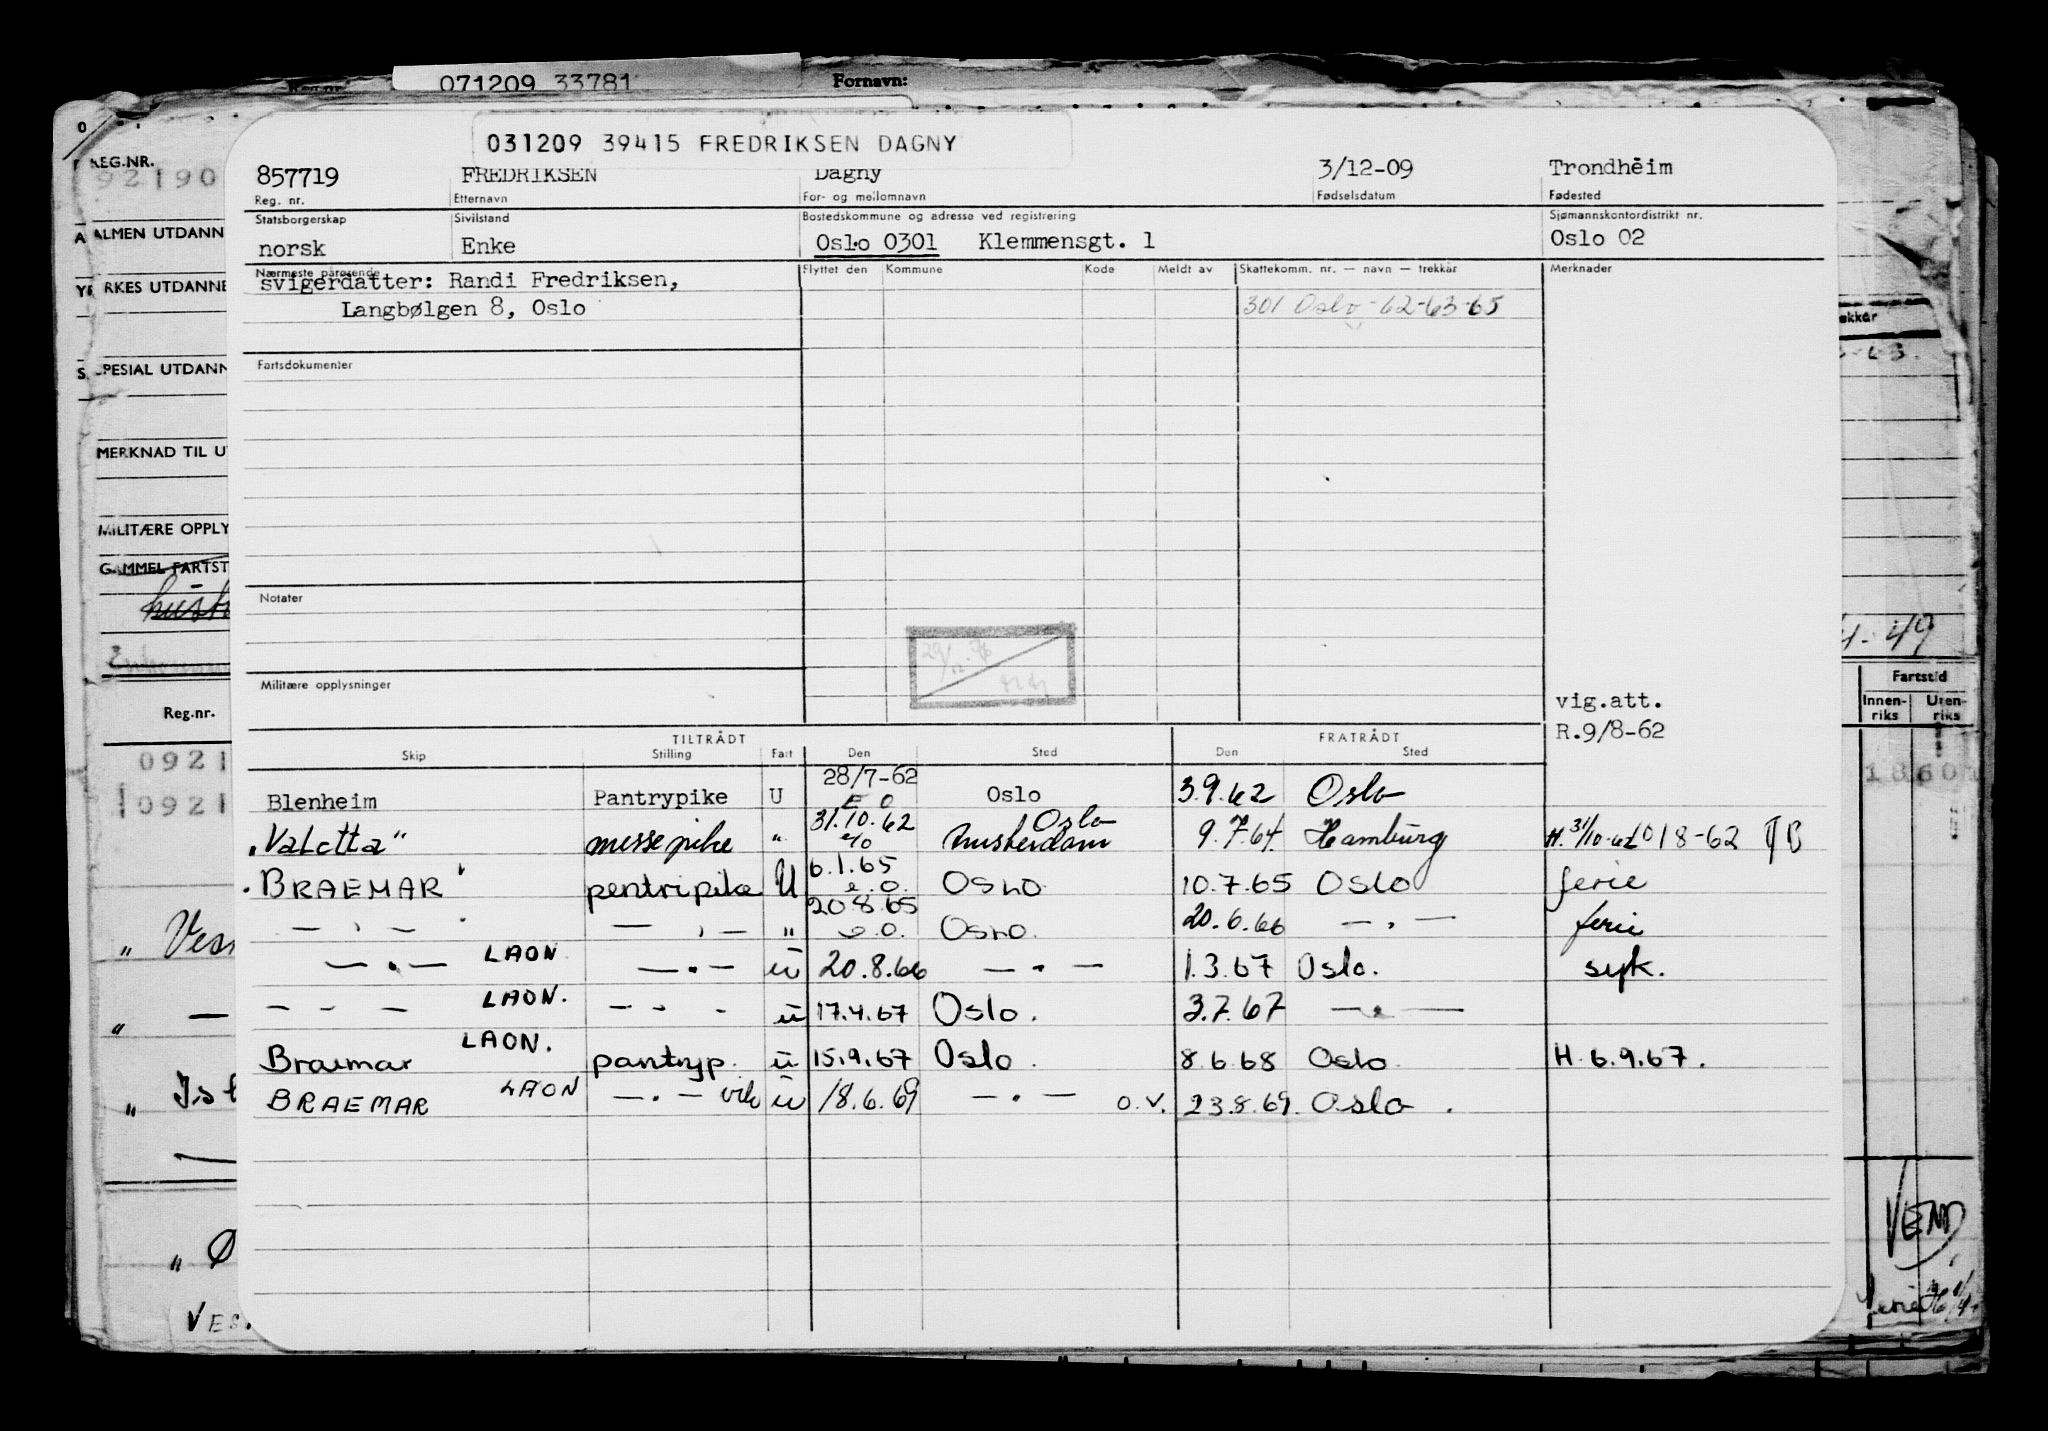 071209 33781 Fornavn:
031209 39415 FREDRIKSEN DAGNY
857719 FREDRIKSEN Dagny 3/12-09 Trondheim
Reg. nr. Etternavn For- og mellomnavn Fødselsdatum Fødested
Statsborgerskap Sivilstand Bostedskommune og adresse ved registrering Sjømannskontordistrikt nr.
norsk Enke Oslo 0301 Klemmensgt. 1 Oslo 02
Nærmeste pårørende Flyttet den Kommune Kode Meldt av Skattekomm. nr. — navn — trekkår Merknader
svigerdatter: Randi Fredriksen,
Langbølgen 8, Oslo 301 Oslo 62-63-65
Fartsdokumenter
Notater
Militære opplysninger
vig.att.
R.9/8-62
TILTRÅDT FRATRÅDT
Skip Stilling Fart Den Sted Den Sted
28/7-62
Blenheim Pantrypike U E O Oslo 3.9.62 Oslo
31.10.62 Oslo
"Valetta" messepike " e/o Amsterdam 9.7.64 Hamburg H.31/10-62 018-62
6.1.65
"BRAEMAR" pentripike U e.o. OSLO 10.7.65 Oslo ferie
20.8.65
— " — — " — " e.o. OSLO. 20.6.66 — " — ferie
— " — LAON — " — u 20.8.66 — " — 1.3.67 Oslo. syk.
— — — LAON. — - - u 17.4.67 Oslo. 3.7.67 — " —
Braemar LAON. pantryp. u 15.9.67 Oslo. 8.6.68 Oslo. H 6.9.67.
BRAEMAR LAON — " — vik u 18.6.69 — " — o.v. 23.8.69. Oslo.
REG.NR.
92190
ALMEN UTDANN
YRKES UTDANNE
SPESIAL UTDANN
MERKNAD TIL U
MILITÆRE OPPLY
GAMMEL FARTST
Reg.nr.
0921
0921
" Ø
VES.
4-49
Fartstid
Innen-riks Uten-riks
1860
VEND